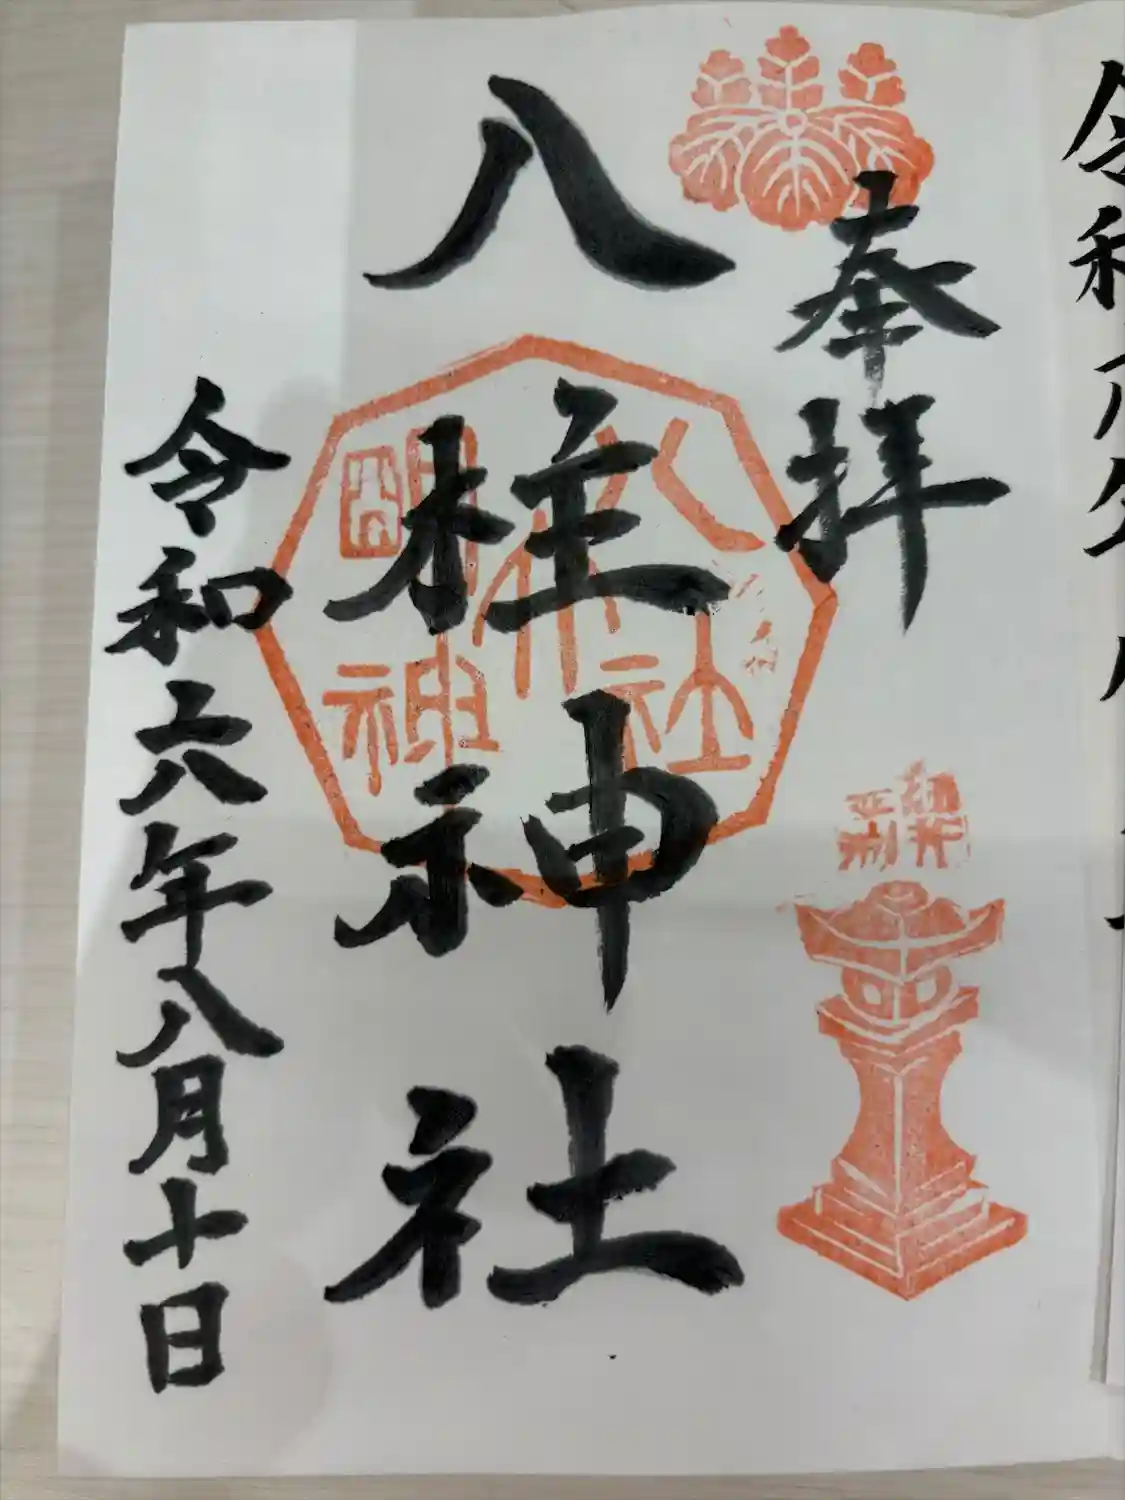 奉拝
八柱神社
令和六年八月十日
八柱社
明神